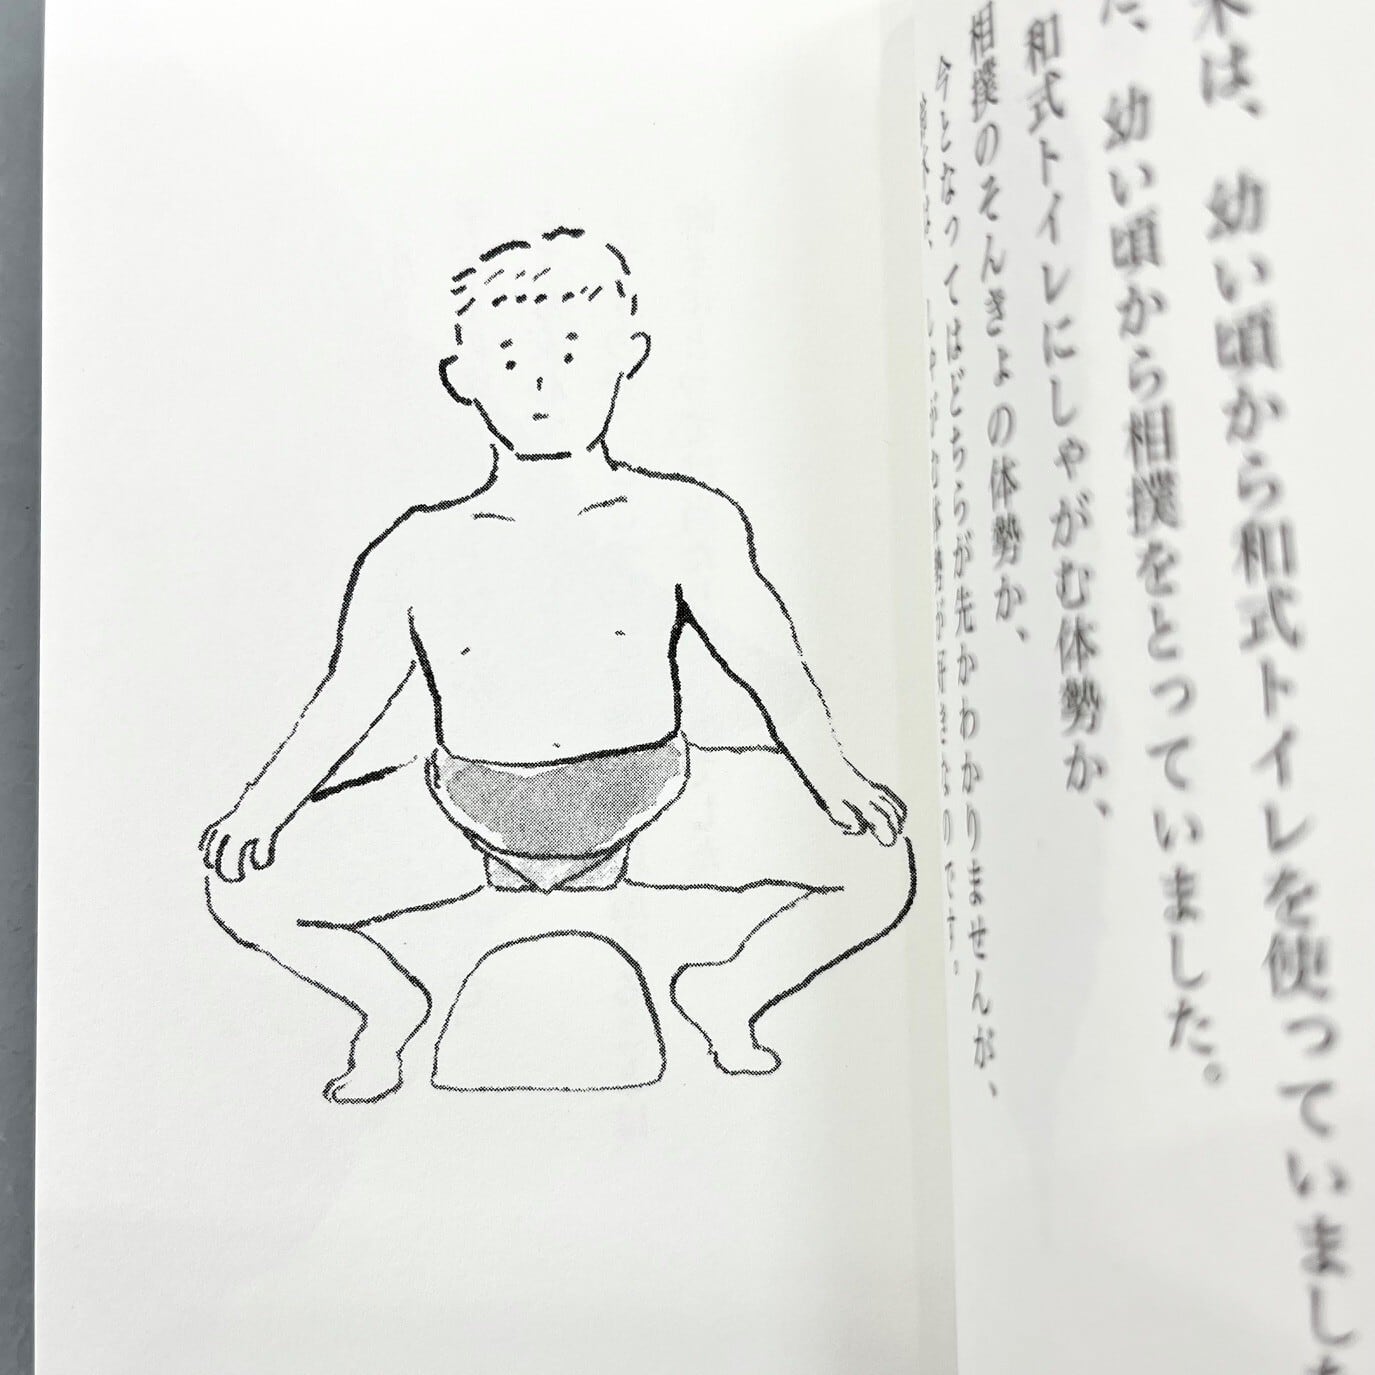 は、幼い頃から和式トイレを使っていました
、幼い頃から相撲をとっていました。
和式トイレにしゃがむ体勢か、
相撲のそんきょの体勢か、
今となってはどちらが先かわかりませんが、